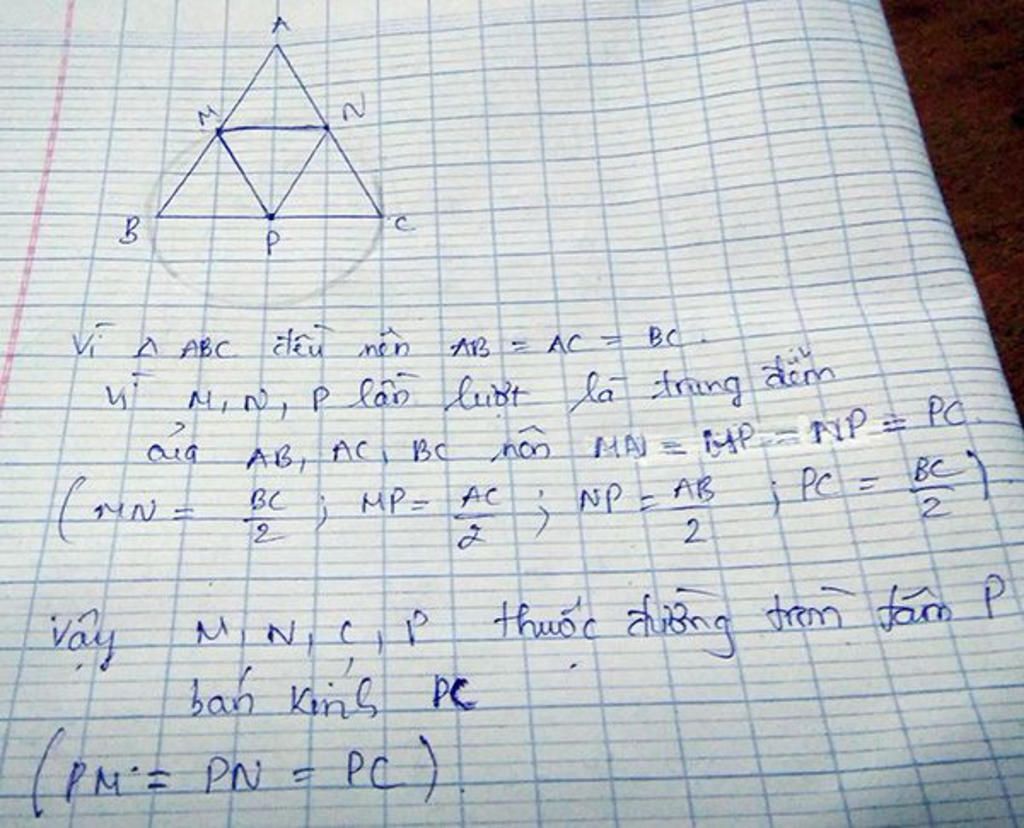 A
M N
B P C
Vì Δ ABC đều nên AB = AC = BC.
Vì M, N, P lần lượt là trung điểm
của AB, AC, BC nên MN = MP = NP = PC
(MN = BC/2 ; MP = AC/2 ; NP = AB/2 ; PC = BC/2)
Vậy M, N, C, P thuộc đường tròn tâm P
bán kính PC
(PM = PN = PC)